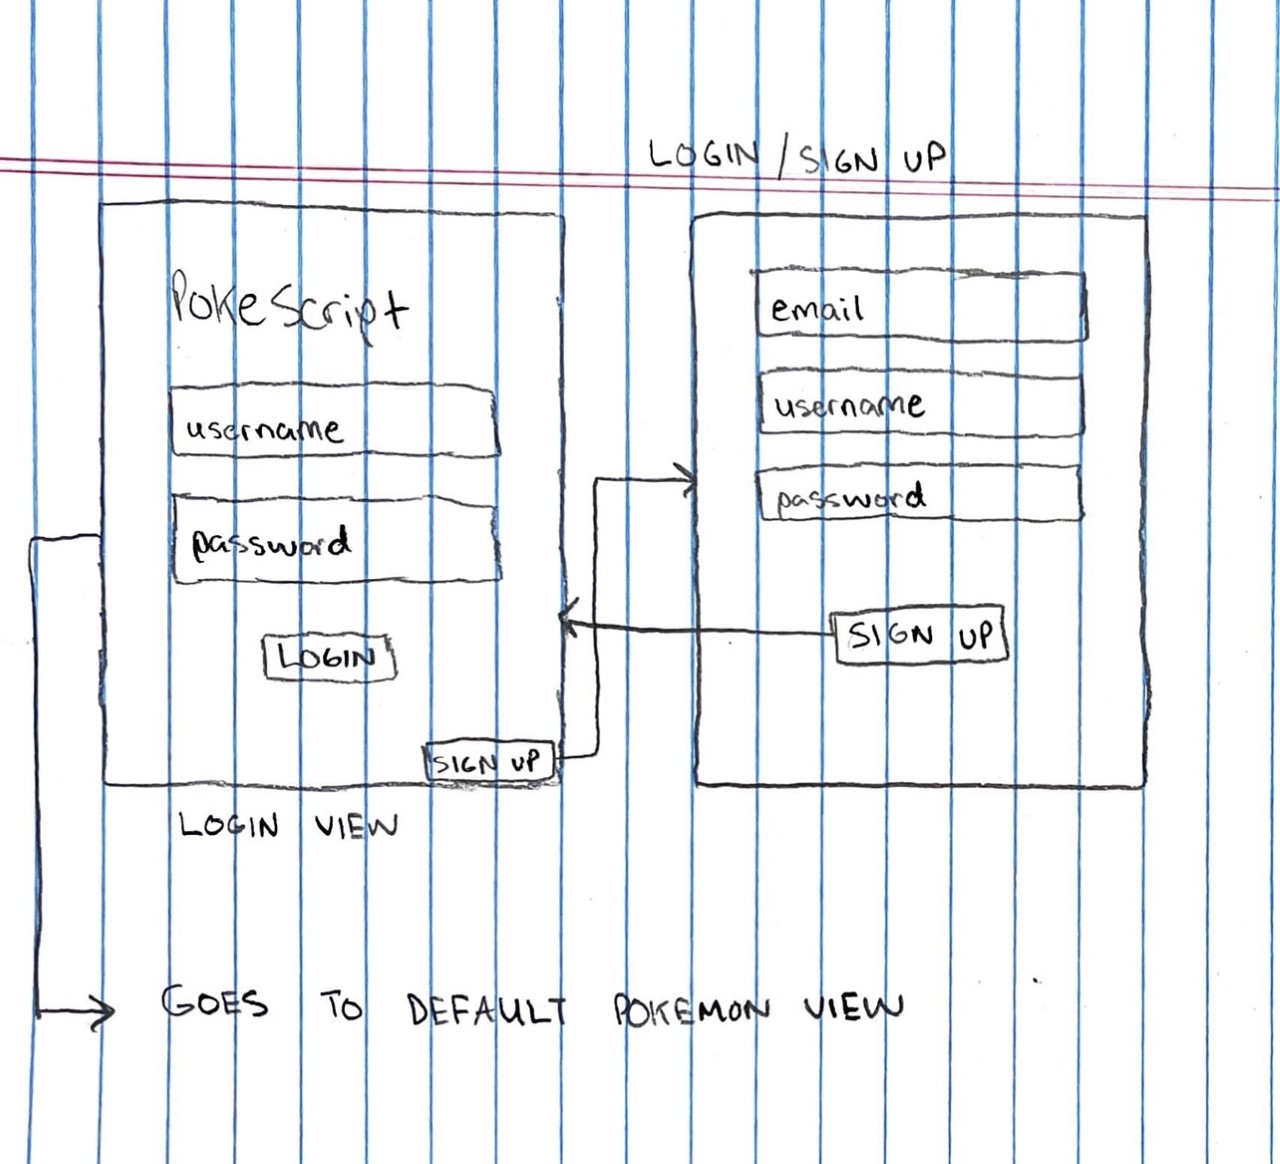 LOGIN / SIGN UP
PokeScript
username
password
LOGIN
SIGN UP
LOGIN VIEW
email
username
password
SIGN UP
GOES TO DEFAULT POKEMON VIEW